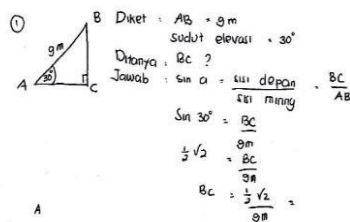 ① B Diket : AB = 9m
9m sudut elevasi = 30°
Ditanya : BC ?
A 30° C Jawab : sin a = sisi depan / sisi miring = BC / AB
Sin 30° = BC / 9m
½√2 = BC / 9m
BC = ½√2 / 9m =
A